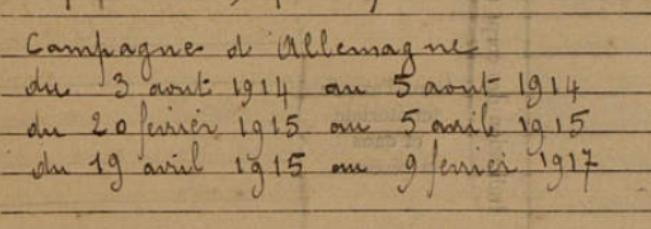 Campagne d'Allemagne
du 3 aout 1914 au 5 aout 1914
du 20 fevrier 1915 au 5 avril 1915
du 19 avril 1915 au 9 fevrier 1917